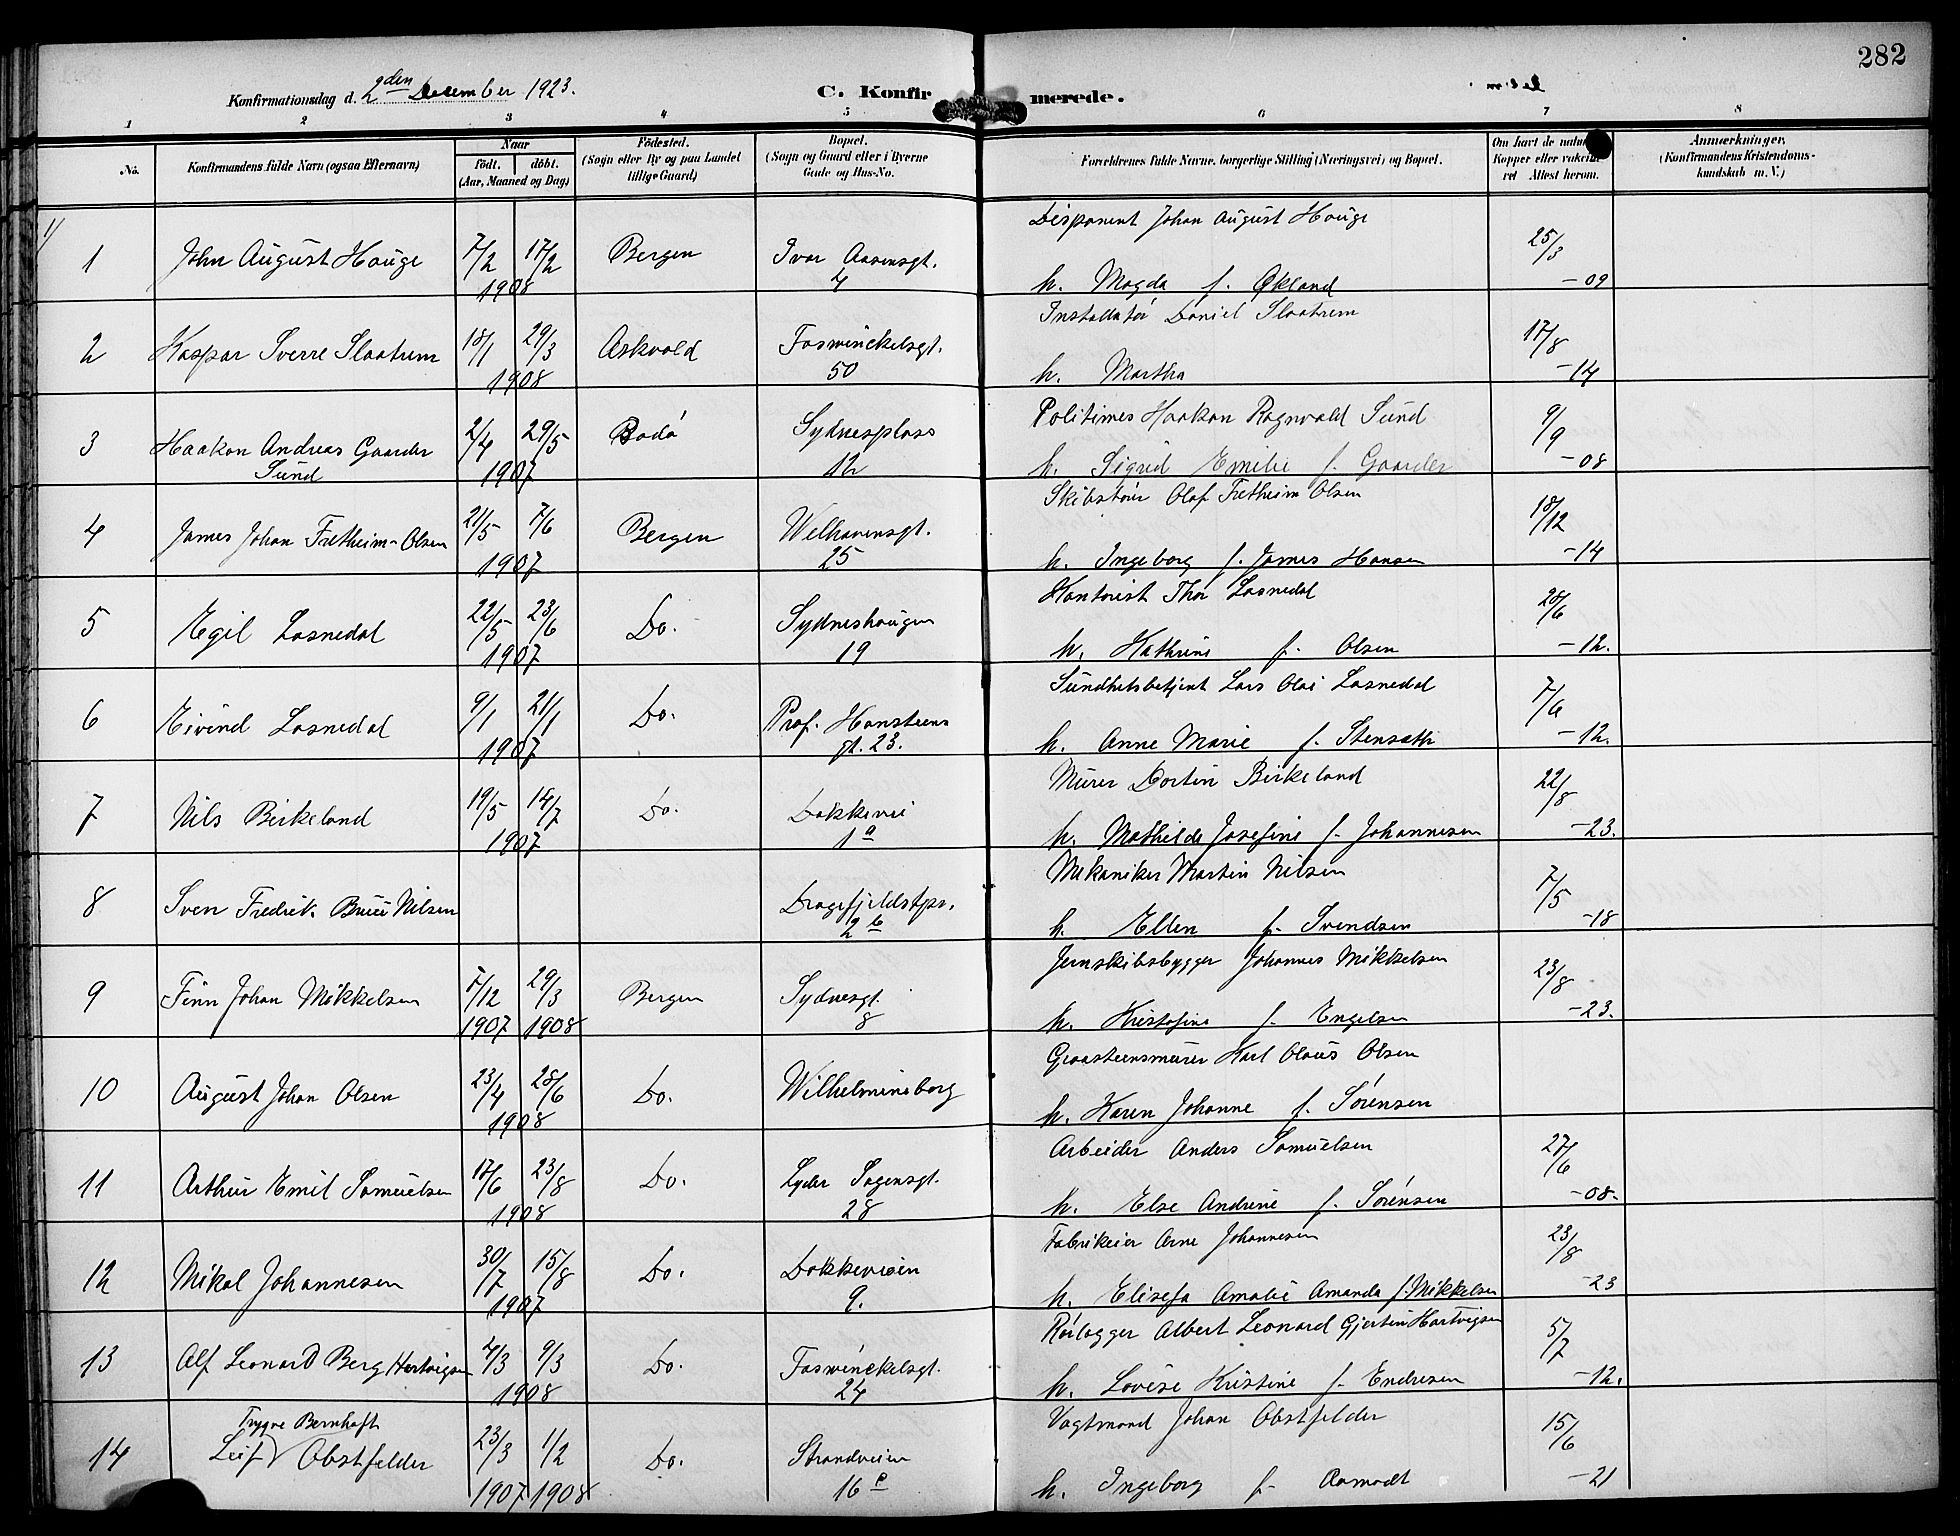 282
Konfirmationsdag d. 2den December 1923.
C. Konfir merede.
1 2 3 4 5 6 7 8
No. Konfirmandens fulde Navn (ogsaa Efternavn) Naar født. døbt. (Aar, Maaned og Dag) Fødested. (Sogn eller By og paa Landet tillige Gaard) Bopæl. (Sogn og Gaard eller i Byerne Gade og Hus-No. Forældrenes fulde Navne, borgerlige Stilling (Næringsvei) og Bopæl. Om havt de natur Kopper eller vakcine ret Attest herom. Anmærkninger. (Konfirmandens Kristendoms- kundskab m. V.)
Disponent Johan August Houge
1 John August Houge 7/2 17/2 Bergen Ivar Aasensgt. 25/3
1908 4 h. Magda f. Økland -09
Installatør Daniel Slaatrem
2 Kaspar Sverre Slaatrem 18/1 29/3 Askvold Foswinckelsgt. 17/8
1908 50 h. Martha -14
Politimes Haakon Ragnvald Sund
3 Haakon Andreas Gaarder 2/4 29/5 Bodø Sydnesplass 9/9
Sund 1907 12 h. Sigrid Emilie f. Gaarder -08
Skibstør Olaf Fretheim Olsen
4 James Johan Fretheim-Olsen 21/5 7/6 Bergen Welhavensgt. 18/12
1907 25 h. Ingeborg f. James Hansen -14
Kontorist Thor Lasnedal
5 Egil Lasnedal 22/5 23/6 Do. Sydneshaugen 28/6
1907 19 h. Kathrine f. Olsen -12.
Sundhetsbetjent Lars Olai Lasnedal
6 Eivind Lasnedal 9/1 21/1 Do. Prof. Hansteens 7/6
1907 gt. 23. h. Anne Marie f. Stensæth -12.
Murer Dortin Birkeland
7 Nils Birkeland 19/5 14/7 Do. Dokkevei 22/8
1907 1a h. Mathilde Josefine f. Johannesen -23.
Mekaniker Martin Nilsen
8 Sven Fredrik Nilsen Dragefjeldstpr. 7/5
2b h. Ellen f. Svendsen -18
Jernskibsbygger Johannes Mikkelsen
9 Finn Johan Mikkelsen /12 29/3 Bergen Sydnesgt. 23/8
1907 1908 8 h. Kristofine f. Engelsen -23.
Graasteensmurer Karl Olaus Olsen
10 August Johan Olsen 23/4 28/6 Do. Wilhelmineborg
1908 h. Karen Johanne f. Sørensen
Arbeider Anders Samuelsen
11 Arthur Emil Samuelsen 17/6 23/8 Do. Lyder Sagensgt. 27/6
1908 28 h. Else Andrine f. Sørensen -08.
Fabrikeier Arne Johannesen
12 Mikal Johannesen 30/7 15/8 Do. Dokkeveien 23/8
1907 9. h. Elisefa Amalie Amanda f. Mikkelsen -23
Rørlægger Albert Leonard Gjertin Hartvigsen
13 Alf Leonard Berg Hartvigsen 4/3 9/3 Do. Foswinckelsgt. 5/7
1908 24 h. Lovise Kristine f. Endresen -12.
Trygve Bernhoft Vagtmand Johan Obstfelder
14 Leif Obstfelder 23/3 1/2 Do. Strandveien 15/6
1907 1908 16c h. Ingeborg f. Aamodt -21